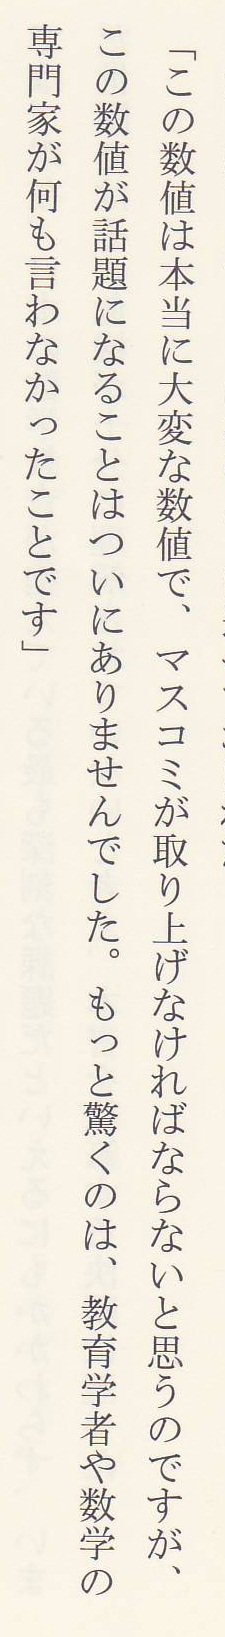 「この数値は本当に大変な数値で、マスコミが取り上げなければならないと思うのですが、
この数値が話題になることはついにありませんでした。もっと驚くのは、教育学者や数学の
専門家が何も言わなかったことです」